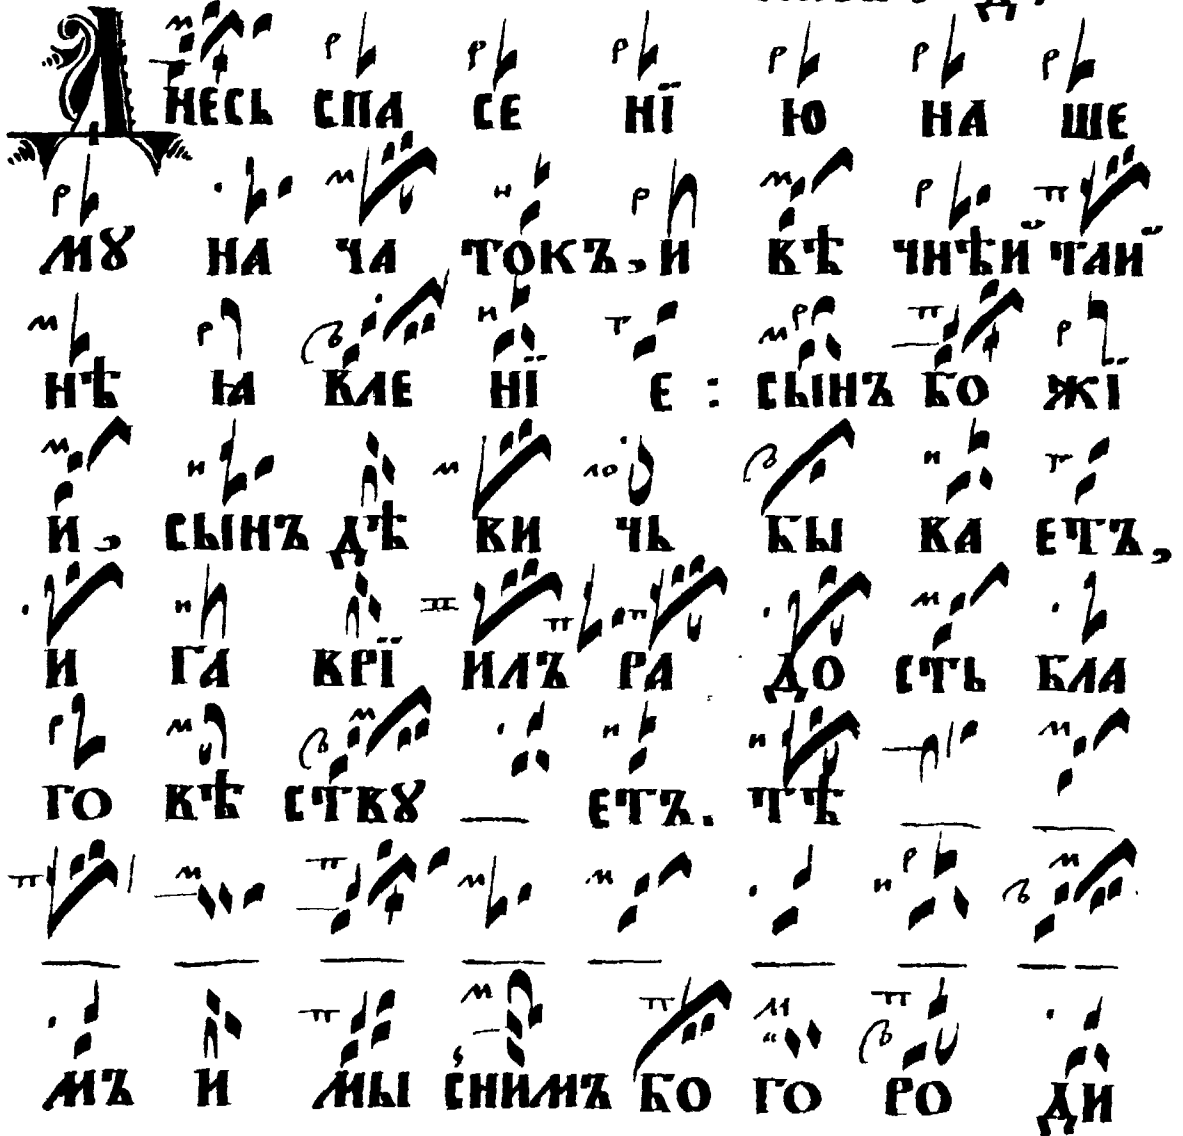 Днесь спа се нї ю на ше
мꙋ на ча токъ, и вѣ чнѣй тай
нѣ ꙗ вле нї е : сынъ бо жї
й, сынъ дѣ ви чь бы ва етъ,
и га врї илъ ра до сть бла
го вѣ ствꙋ — етъ. тѣ
мъ и мы снимъ бо го ро ди